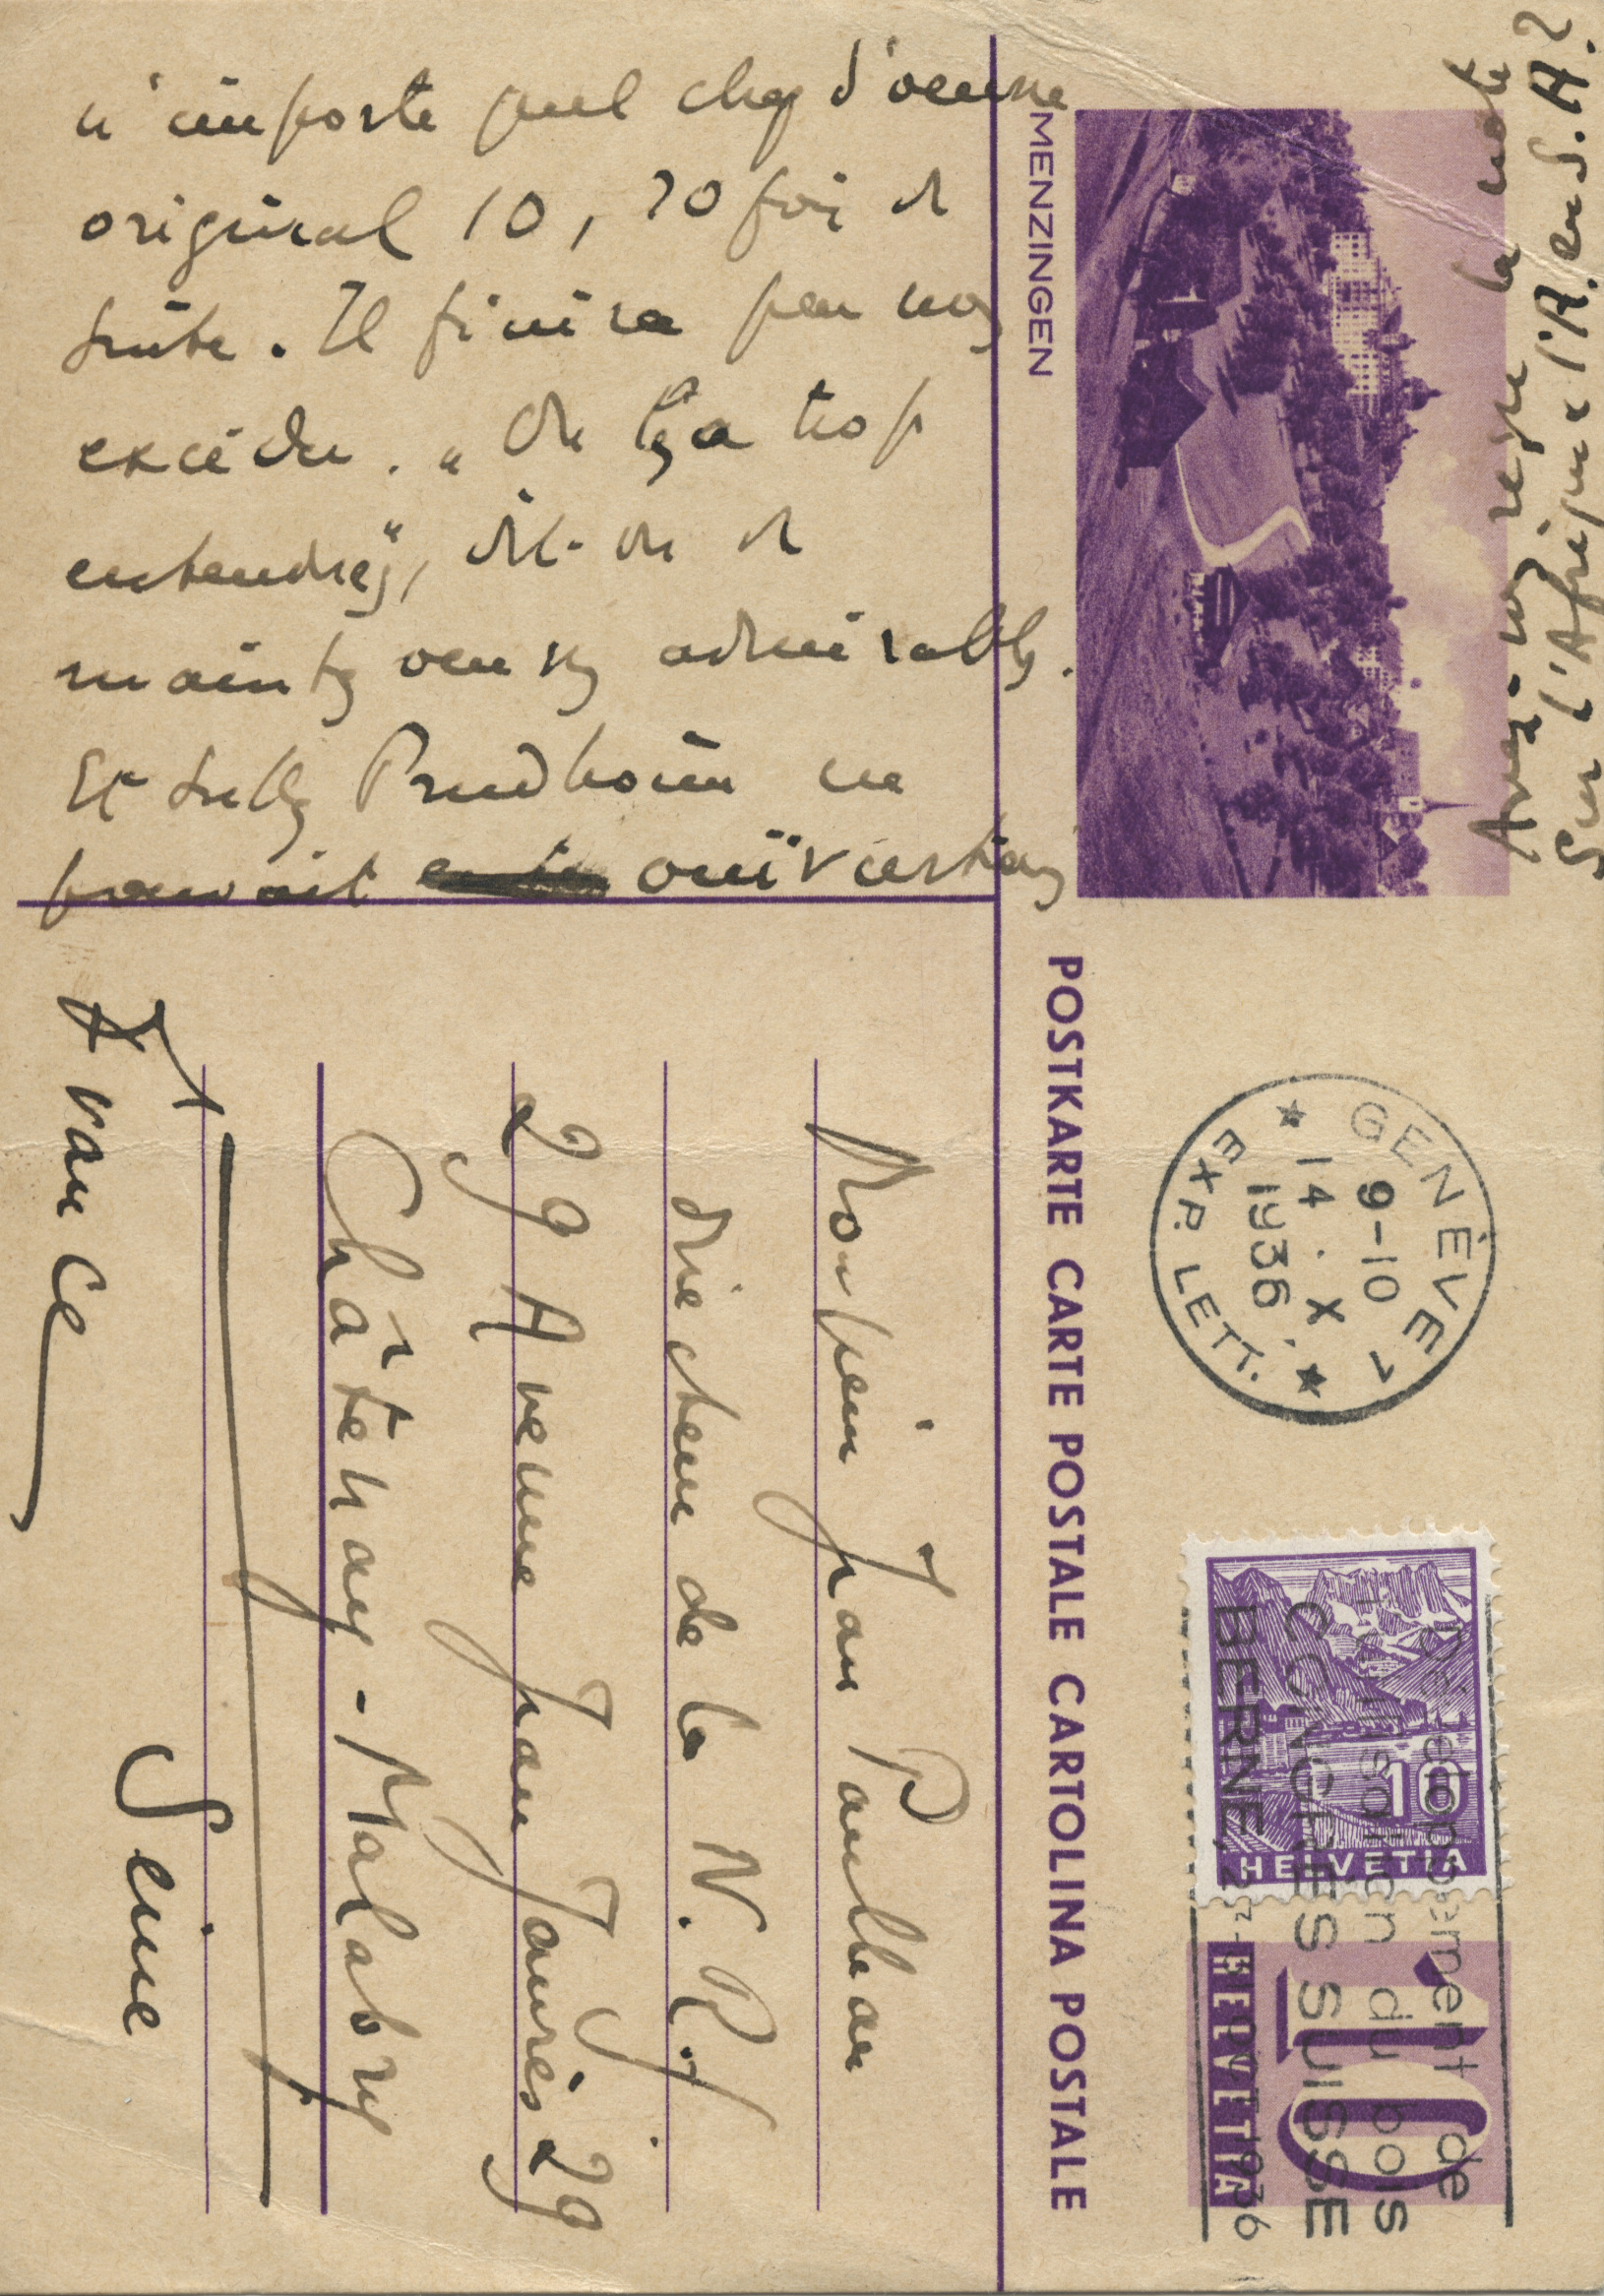 n'importe quel chef d'oeuvre
original 10, 20 fois de
suite. Il finira par nous
excéder. "On l'a trop
entendu", dit-on de
maintes oeuvres admirables.
Et Sully Prudhomme ne
pouvait
MENZINGEN
Avez-vous reçu la note
sur l'Afrique et l'A. en S.A.?
POSTKARTE CARTE POSTALE CARTOLINA POSTALE
GENÈVE 1
9-10
14.X.
1936
EXP. LETT.
Développement de
l'utilisation du bois
CONGRÈS SUISSE
BERNE, 1936
10
HELVETIA
10
HELVETIA
Monsieur Jean Paulhan
directeur de la N.R.f
29 Avenue Jean Jaurès 29
Châtenay-Malabry
Seine
France